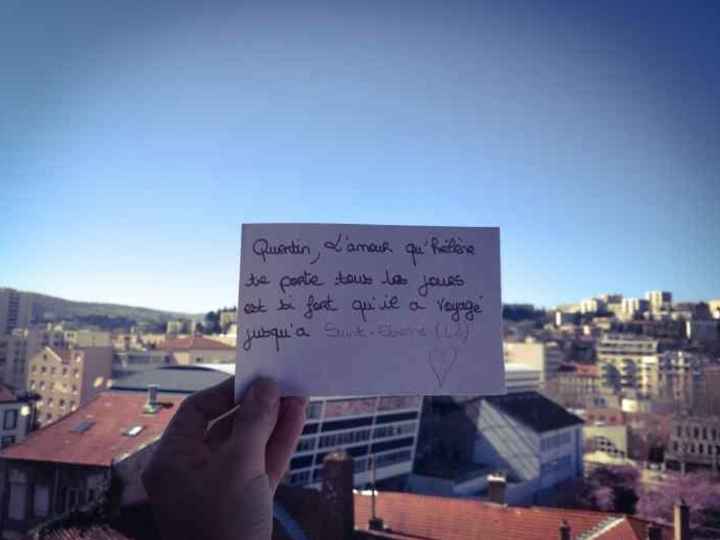 Quentin, L'amour qu'Hélène
te porte tous les jours
est si fort qu'il a voyagé
jusqu'a Saint-Etienne (42)